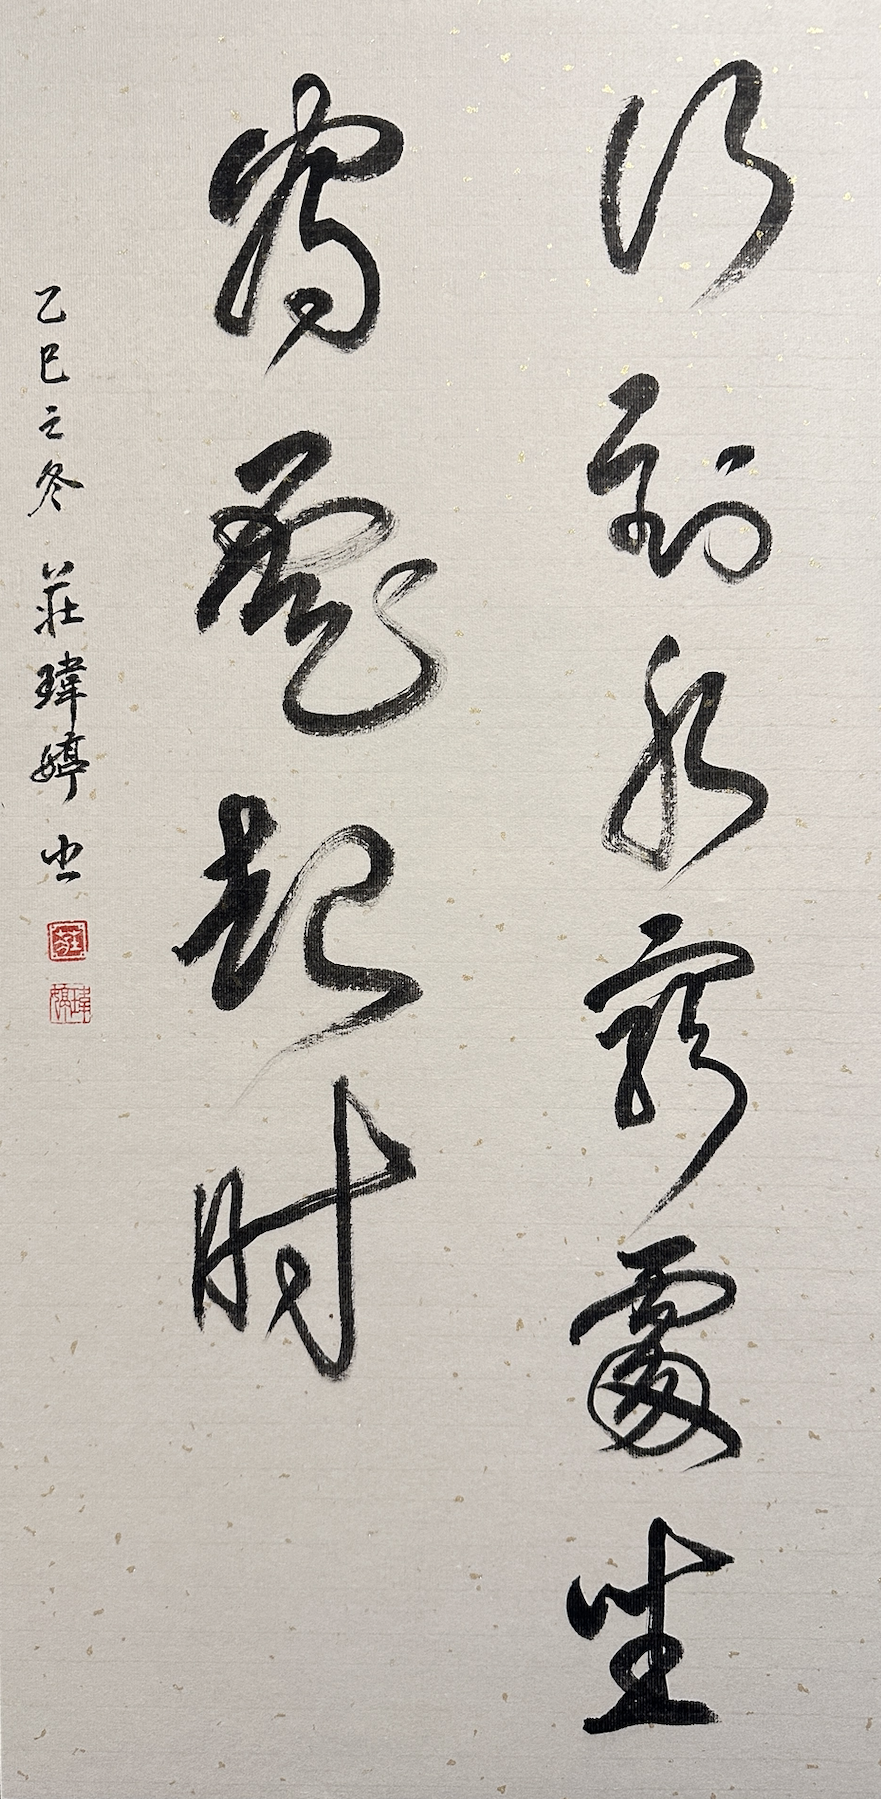 行到水窮處坐
看雲起時
乙巳之冬 莊瑋婷書
莊
瑋婷